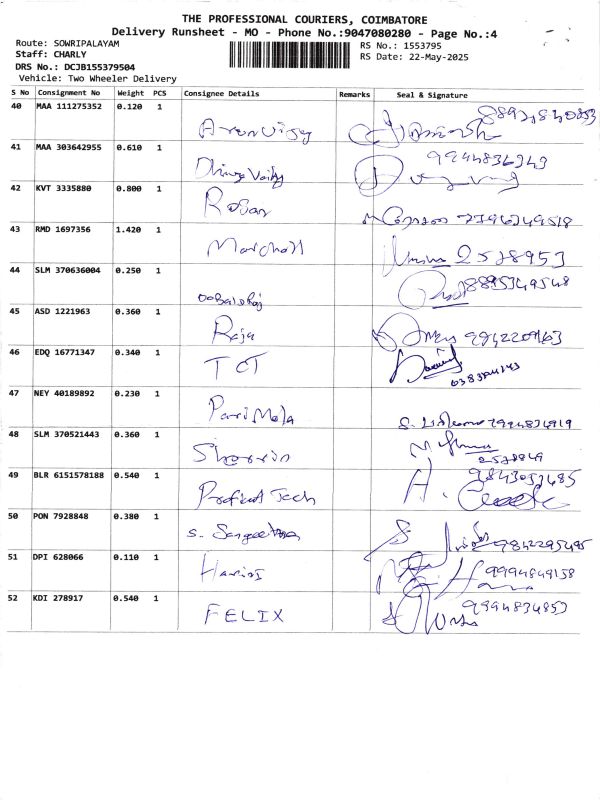 THE PROFESSIONAL COURIERS, COIMBATORE
Delivery Runsheet - MO - Phone No.:9047080280 - Page No.:4
Route: SOWRIPALAYAM
Staff: CHARLY
DRS No.: DCJB155379504
Vehicle: Two Wheeler Delivery
RS No.: 1553795
RS Date: 22-May-2025
S No Consignment No Weight PCS Consignee Details Remarks Seal & Signature
40 MAA 111275352 0.120 1
41 MAA 303642955 0.610 1 9944836343
42 KVT 3335880 0.800 1
43 RMD 1697356 1.420 1 Marshall 2528953
44 SLM 370636004 0.250 1 8895349548
45 ASD 1221963 0.360 1 Raja
46 EDQ 16771347 0.340 1 TCT
47 NEY 40189892 0.230 1 Pari Mala
48 SLM 370521443 0.360 1 Sherrin
49 BLR 6151578188 0.540 1 Tech
50 PON 7928848 0.380 1 S. Sangeetha 9842295495
51 DPI 628066 0.110 1 9994849158
52 KDI 278917 0.540 1 FELIX 9994834853